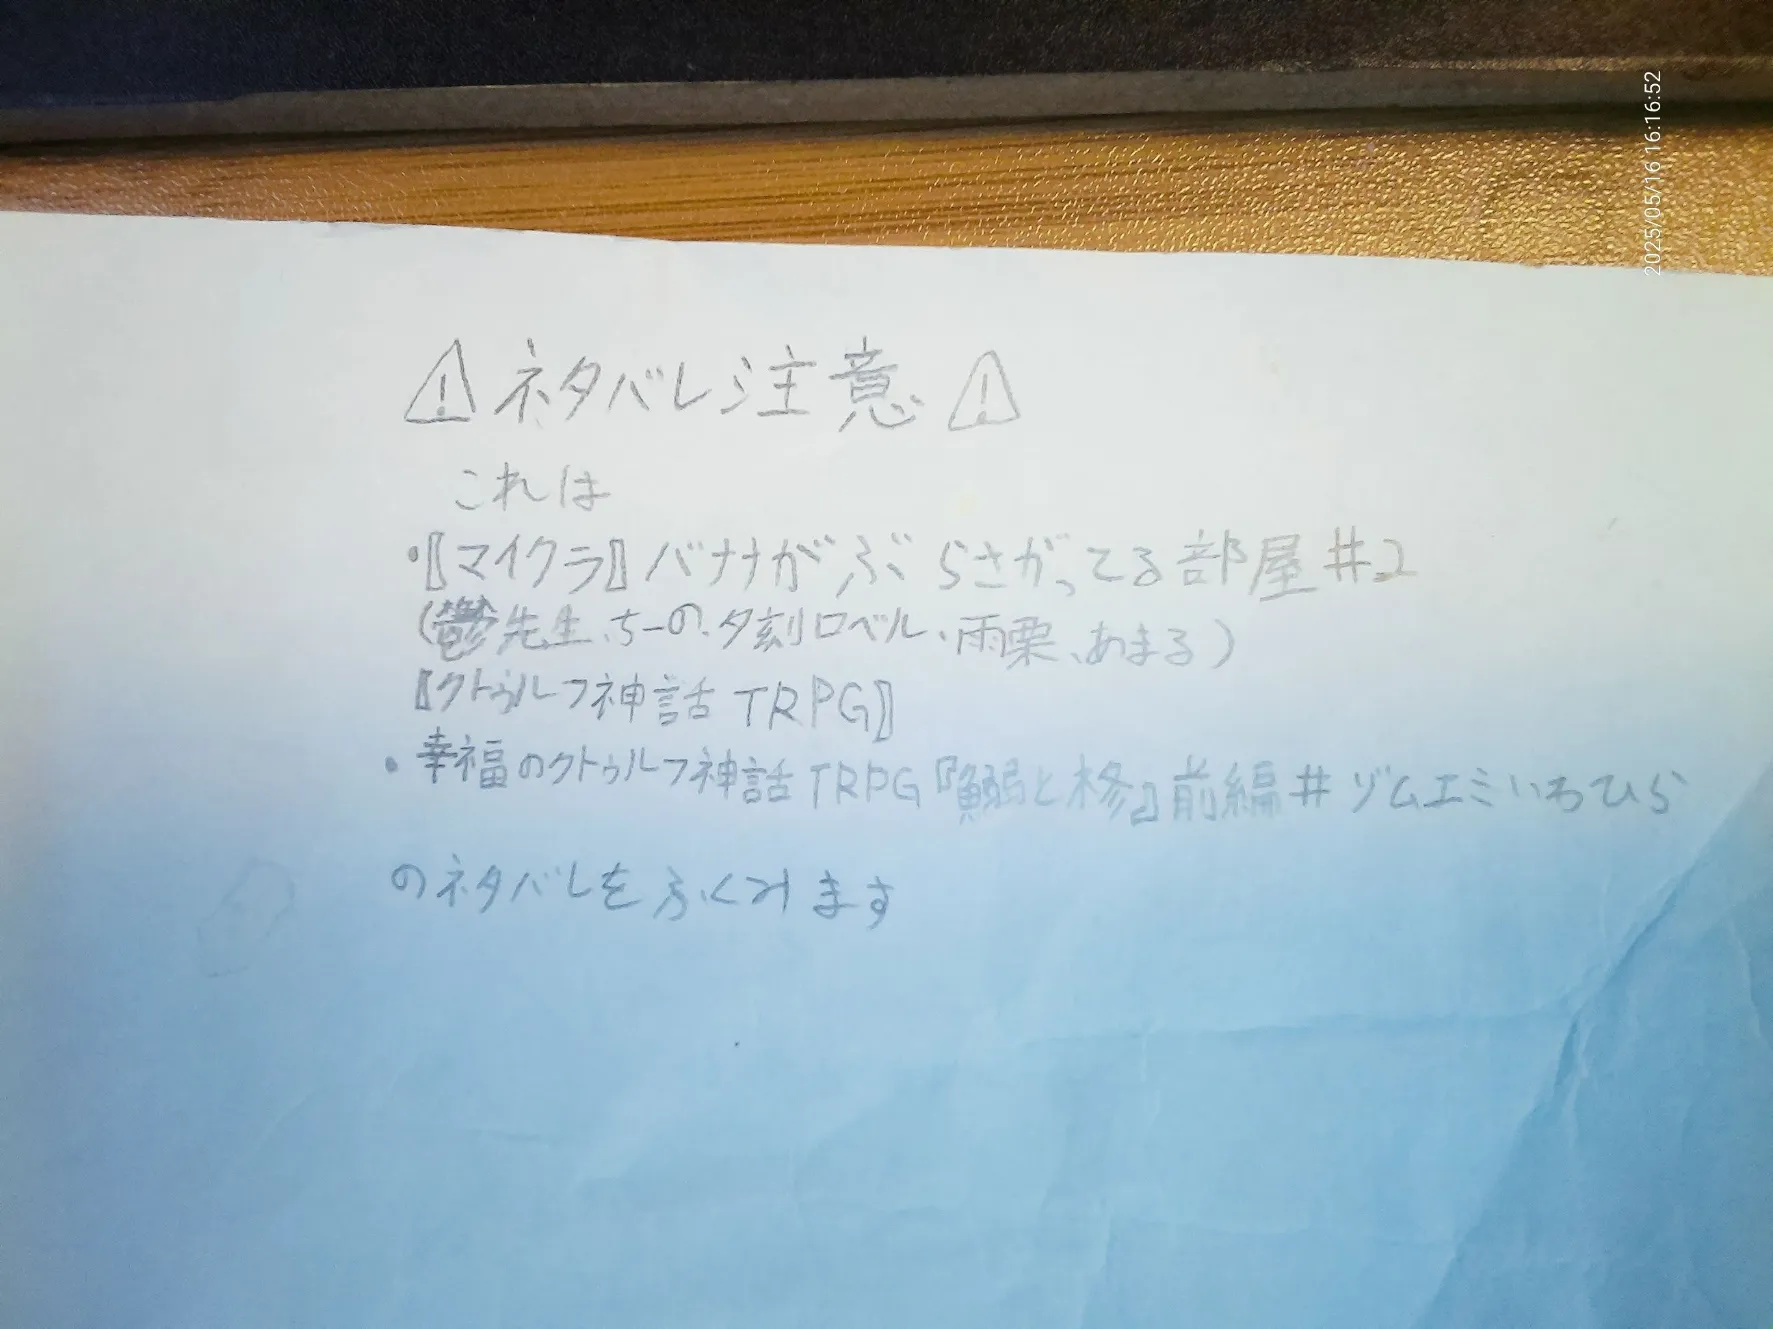 ⚠ネタバレ注意⚠
これは
・〖マイクラ〗バナナがぶらさがってる部屋#2
(鬱先生、ちーの、夕刻ロベル、雨栗、あまる)
〖クトゥルフ神話TRPG〗
・幸福のクトゥルフ神話TRPG『鰯と柊』前編#ゾムエミいわひら
のネタバレをふくみます
2025/05/16 16:16:52